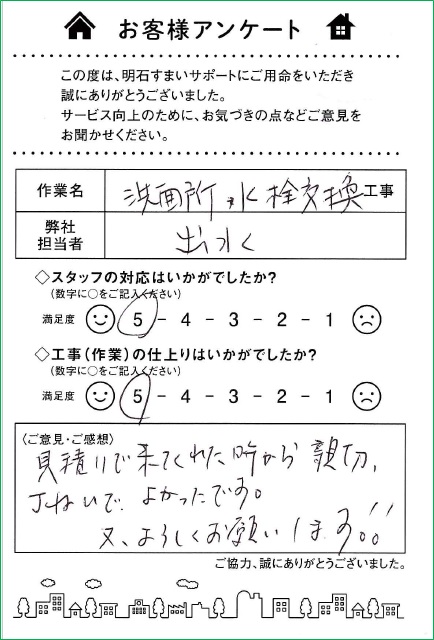 お客様アンケート
この度は、明石すまいサポートにご用命をいただき
誠にありがとうございました。
サービス向上のために、お気づきの点などご意見を
お聞かせください。
作業名 洗面所水栓交換工事
弊社
担当者 出水く
◇スタッフの対応はいかがでしたか?
(数字に○をご記入ください)
満足度 5 - 4 - 3 - 2 - 1
◇工事(作業)の仕上りはいかがでしたか?
(数字に○をご記入ください)
満足度 5 - 4 - 3 - 2 - 1
(ご意見・ご感想)
見積りで来てくれた時から親切、
ていねいで、よかったです。
又、よろしくお願いします!!
ご協力、誠にありがとうございました。